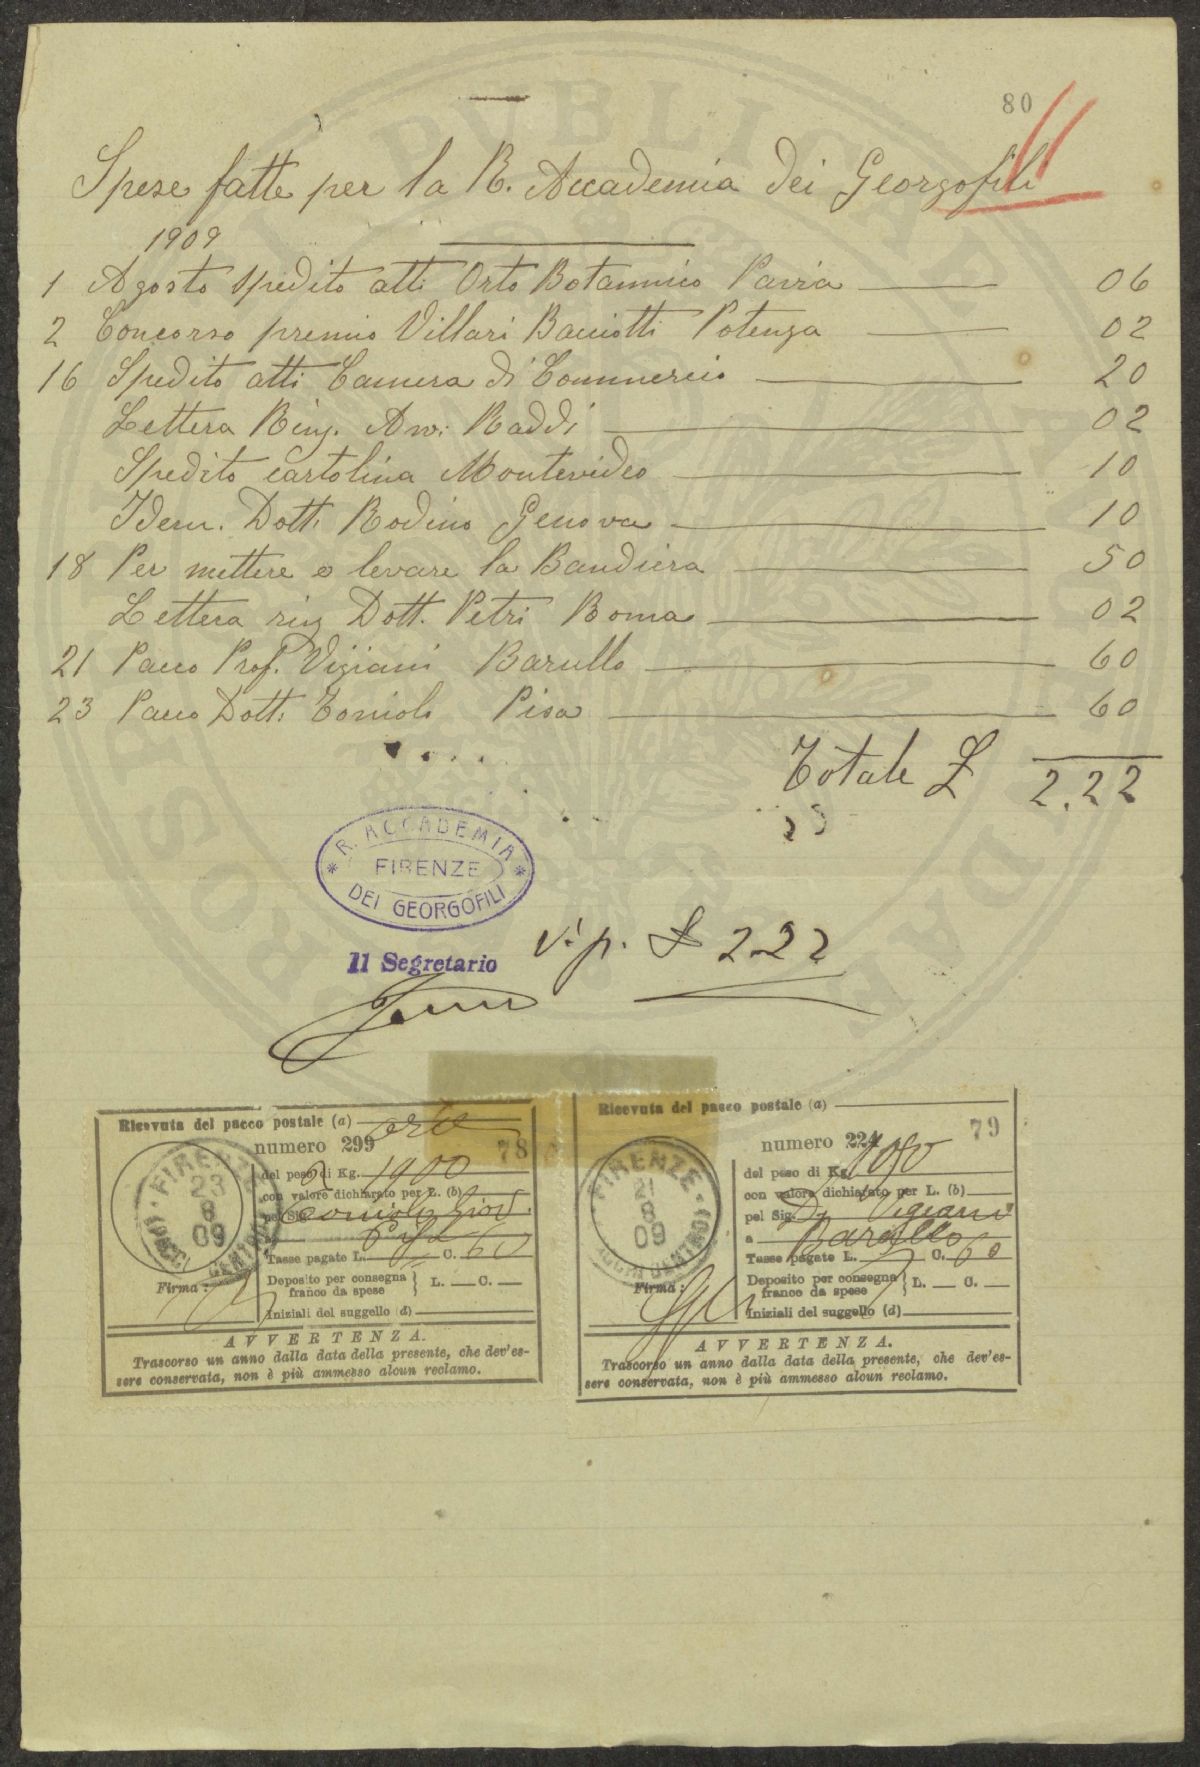 80
Spese fatte per la R. Accademia dei Georgofili
1909
1 Agosto Spedito atti Orto Botannico Pavia 06
2 Concorso premio Villari Baciotti Potenza 02
16 Spedito atti Camera di Commercio 20
Lettera Ring. Avv: Raddi 02
Spedito cartolina Montevideo 10
Idem. Dott. Rodino Genova 10
18 Per mettere e levare la Bandiera 50
Lettera ring Dott. Petri Roma 02
21 Pacco Prof. Vigiani Barullo 60
23 Pacco Dott. Toniolo Pisa 60
Totale £ 2.22
R. ACCADEMIA
FIRENZE
DEI GEORGOFILI
Il Segretario
V. p. £ 2.22
Ricevuta del pacco postale (a)
numero 299 78
del peso di Kg. 1900
con valore dichiarato per L. (b)
pel Sig.
a Pisa
Tasse pagate L. C. 60
Firma:
Deposito per consegna franco da spese } L. C.
Iniziali del suggello (d)
FIRENZE
23
8
09
CENTRO
AVVERTENZA.
Trascorso un anno dalla data della presente, che dev'es-
sere conservata, non è più ammesso alcun reclamo.
Ricevuta del pacco postale (a)
numero 224 79
del peso di Kg.
con valore dichiarato per L. (b)
pel Sig. Vigiani
a Barullo
Tasse pagate L. C. 60
Firma:
Deposito per consegna franco da spese } L. C.
Iniziali del suggello (d)
FIRENZE
21
8
09
AVVERTENZA.
Trascorso un anno dalla data della presente, che dev'es-
sere conservata, non è più ammesso alcun reclamo.